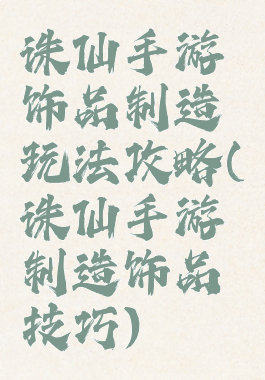 诛仙手游
饰品制造
玩法攻略(
诛仙手游
制造饰品
技巧)